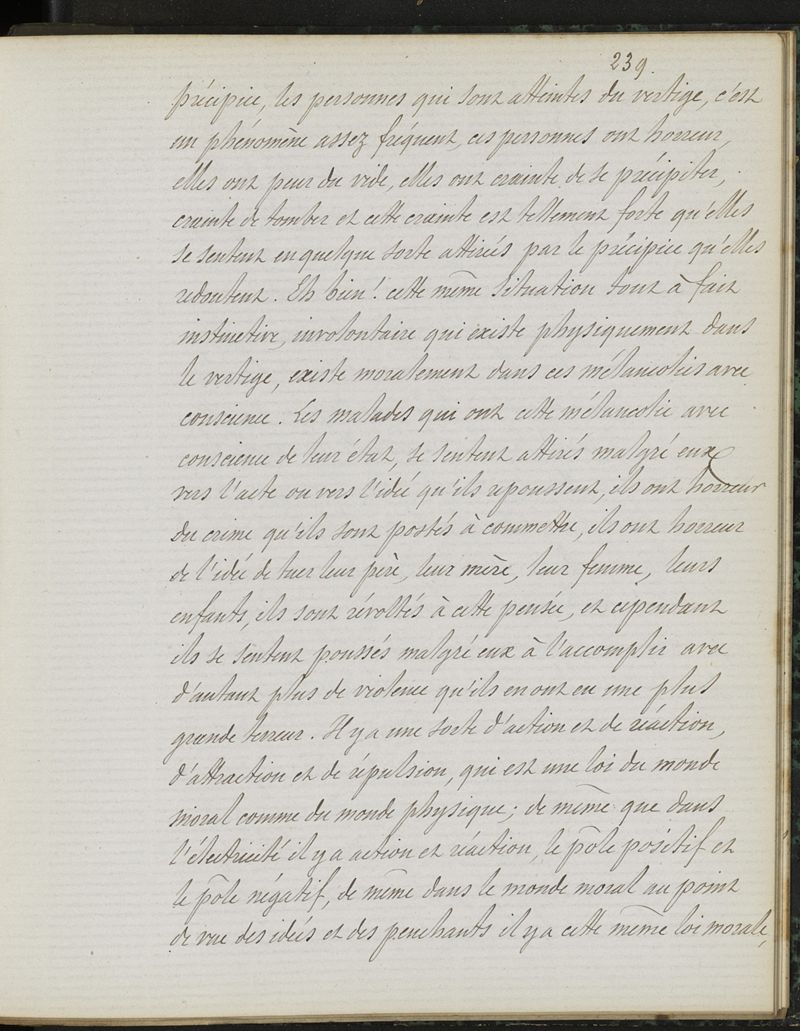 239.
précipice, les personnes qui sont atteintes du vertige, c'est
un phénomène assez fréquent, ces personnes ont horreur,
elles ont peur du vide, elles ont crainte de se précipiter,
crainte de tomber et cette crainte est tellement forte qu'elles
se sentent en quelque sorte attirées par le précipice qu'elles
redoutent. Eh bien! cette même situation tout à fait
instinctive, involontaire qui existe physiquement dans
le vertige, existe moralement dans ces mélancolies avec
conscience. Les malades qui ont cette mélancolie avec
conscience de leur état, se sentent attirés malgré eux
vers l'acte ou vers l'idée qu'ils repoussent, ils ont horreur
du crime qu'ils sont portés à commettre, ils ont horreur
de l'idée de tuer leur père, leur mère, leur femme, leurs
enfants, ils sont révoltés à cette pensée, et cependant
ils se sentent poussés malgré eux à l'accomplir avec
d'autant plus de violence qu'ils en ont eu une plus
grande terreur. Il y a une sorte d'action et de réaction,
d'attraction et de répulsion, qui est une loi du monde
moral comme du monde physique; de même que dans
l'électricité il y a action et réaction, le pôle positif et
le pôle négatif, de même dans le monde moral au point
de vue des idées et des penchants il y a cette même loi morale,